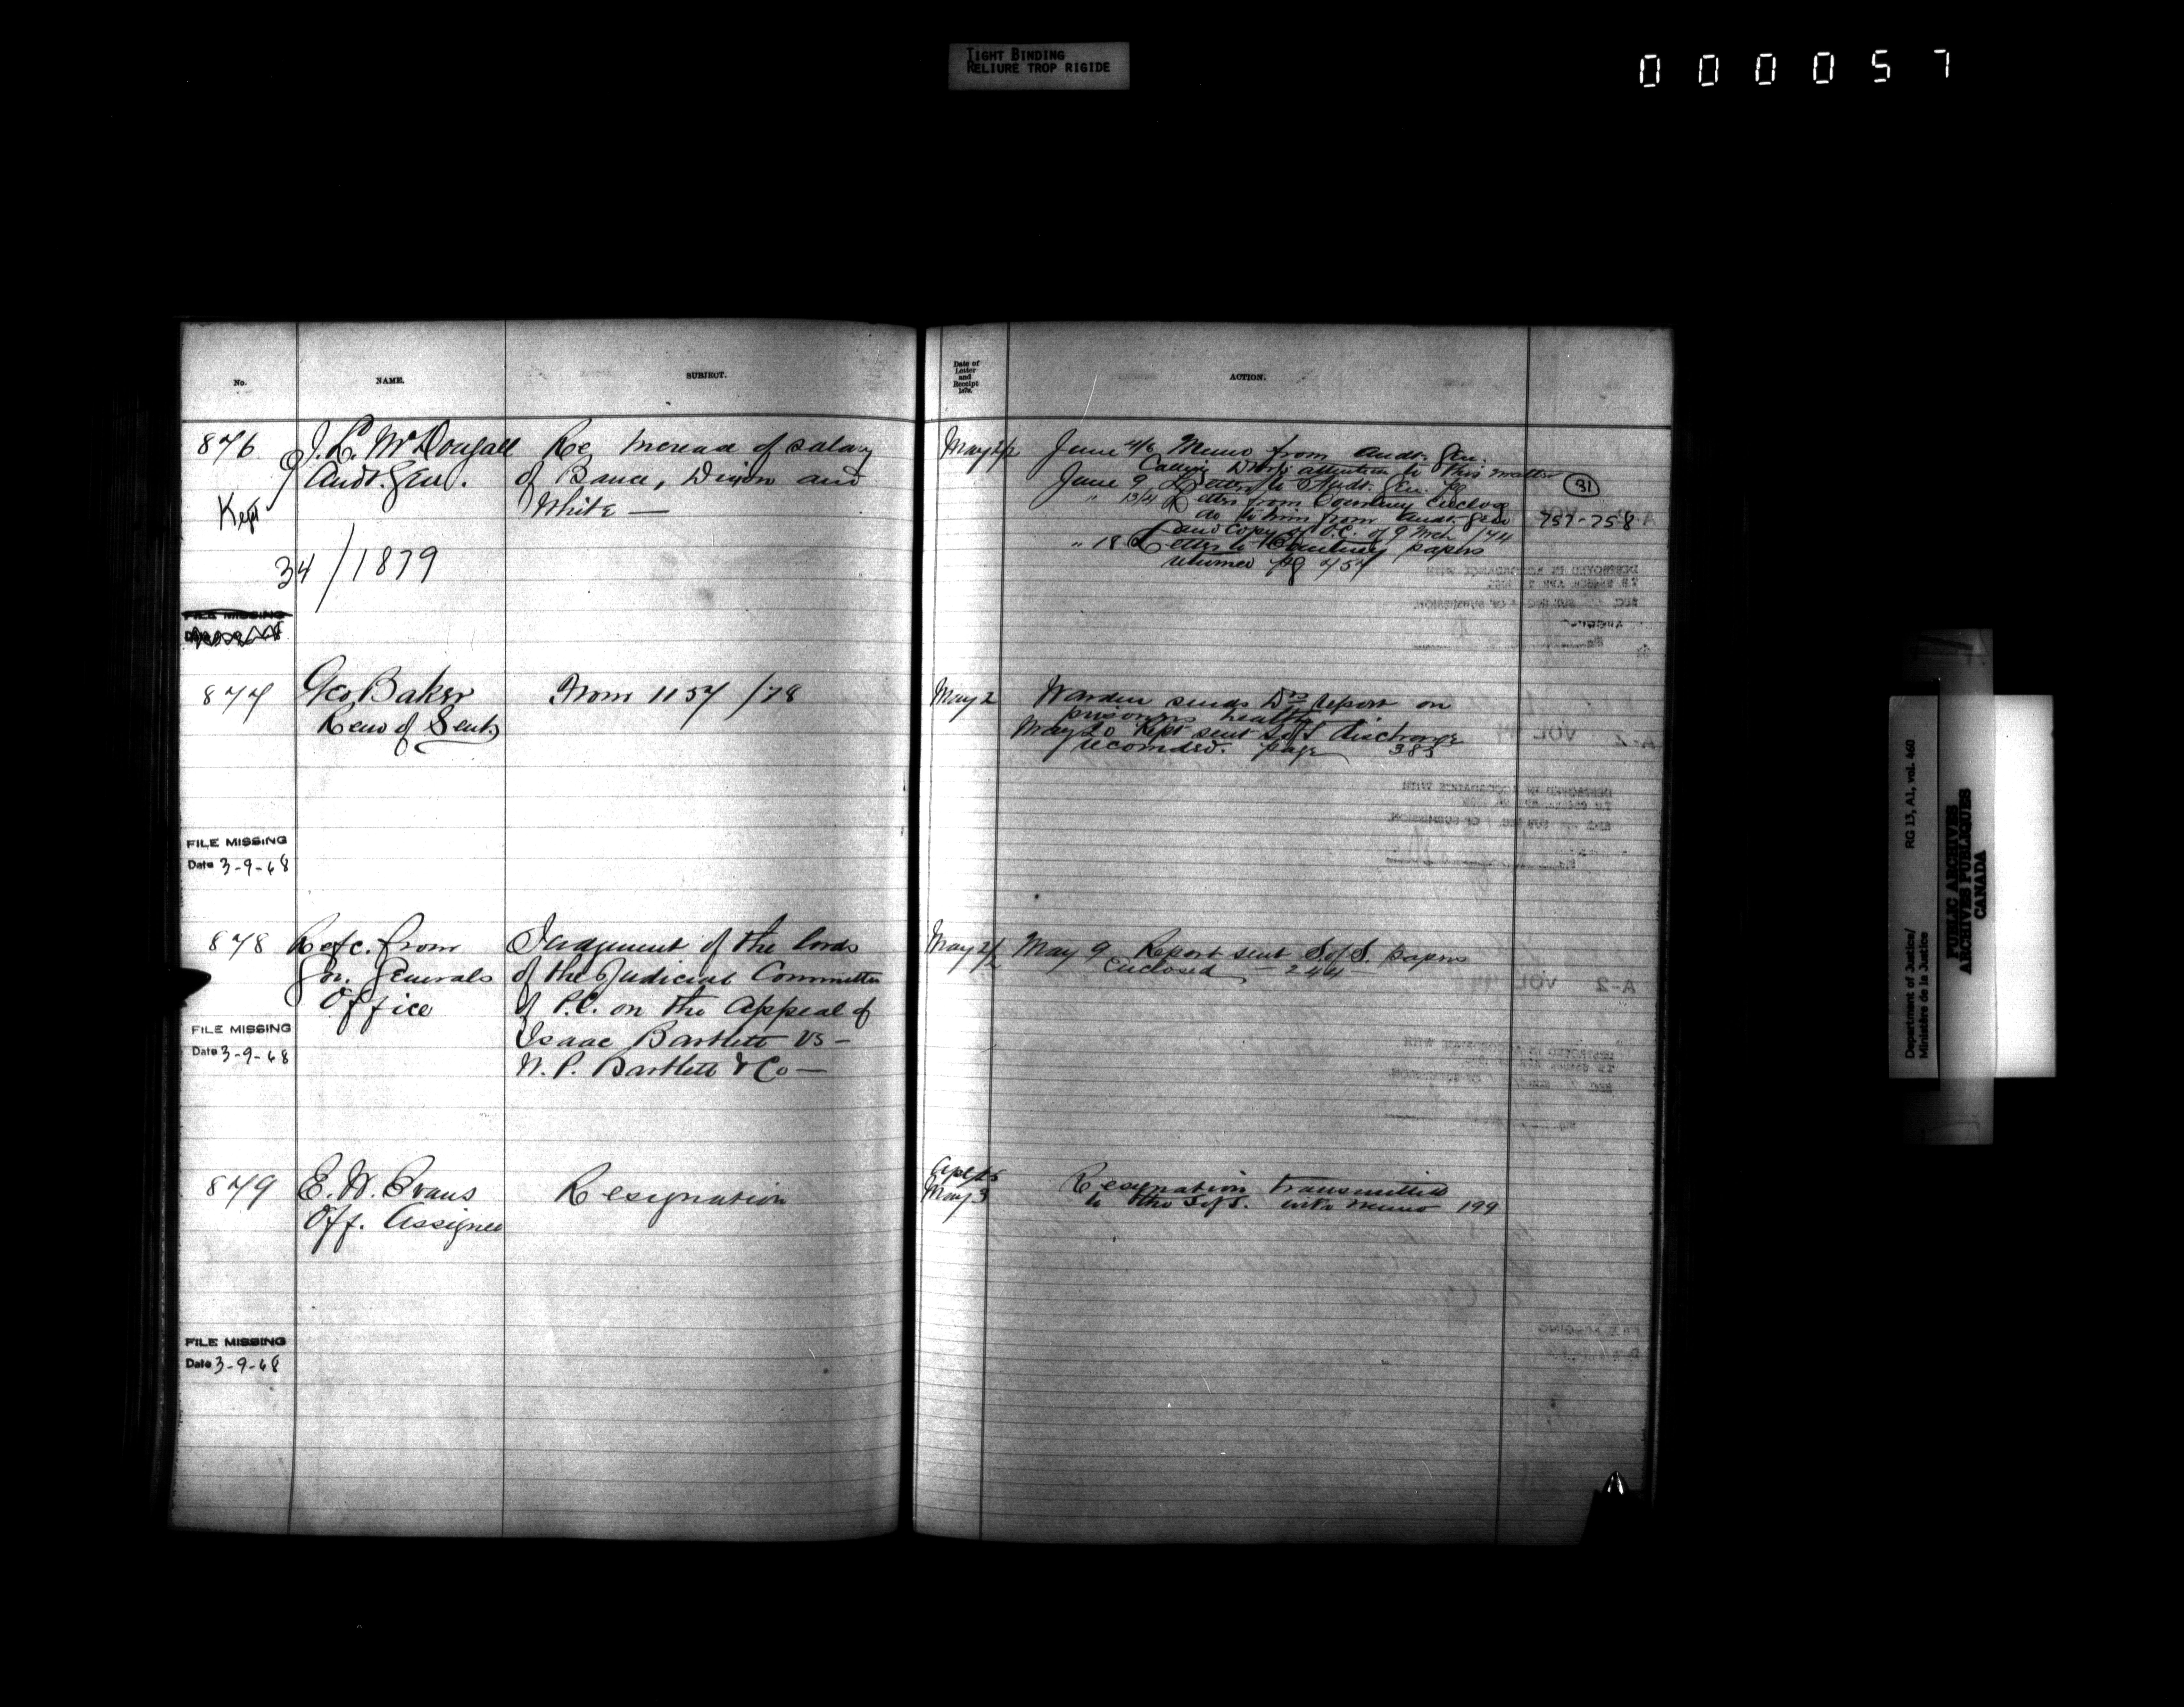 TIGHT BINDING
RELIURE TROP RIGIDE
000057
No. NAME. SUBJECT.
Date of
Letter
and
Receipt
1878.
ACTION.
876 J. L. McDougall Re Increase of salary
Audt. Gen. of Bauce, Dixon and
White —
Kept
34/1879
FILE MISSING
May 2/2 June 4/6 Memo from Audt. Gen.
Calling attention to this matter
June 9 Letter to Audt. Gen. pg
" 13/14 Letter from Courtney enclosg
do to him from Audt. Gen 757-758
31
and copy of O.C. of 9 Mch /74
" 18 Letter to Courtney papers
returned pg 457
877 Geo Baker From 1157/78
Remn of Sent.
May 2 Warden sends Drs report on
prisoners health
May 20 Rept sent S of S discharge
recomded. page 383
FILE MISSING
Date 3-9-68
878 Refc. from Judgment of the lords
Gov. Generals of the Judicial Committee
Office of P.C. on the Appeal of
Isaac Bartlett vs —
N. P. Bartlett & Co —
May 2/2 May 9 Report sent S of S. papers
enclosed — 244
FILE MISSING
Date 3-9-68
879 E. W. Evans Resignation
Off. Assignee
May 3 Resignation transmitted
to the S of S. with memo 199
FILE MISSING
Date 3-9-68
Department of Justice/ RG 13, A1, vol. 460
Ministère de la Justice
PUBLIC ARCHIVES
ARCHIVES PUBLIQUES
CANADA